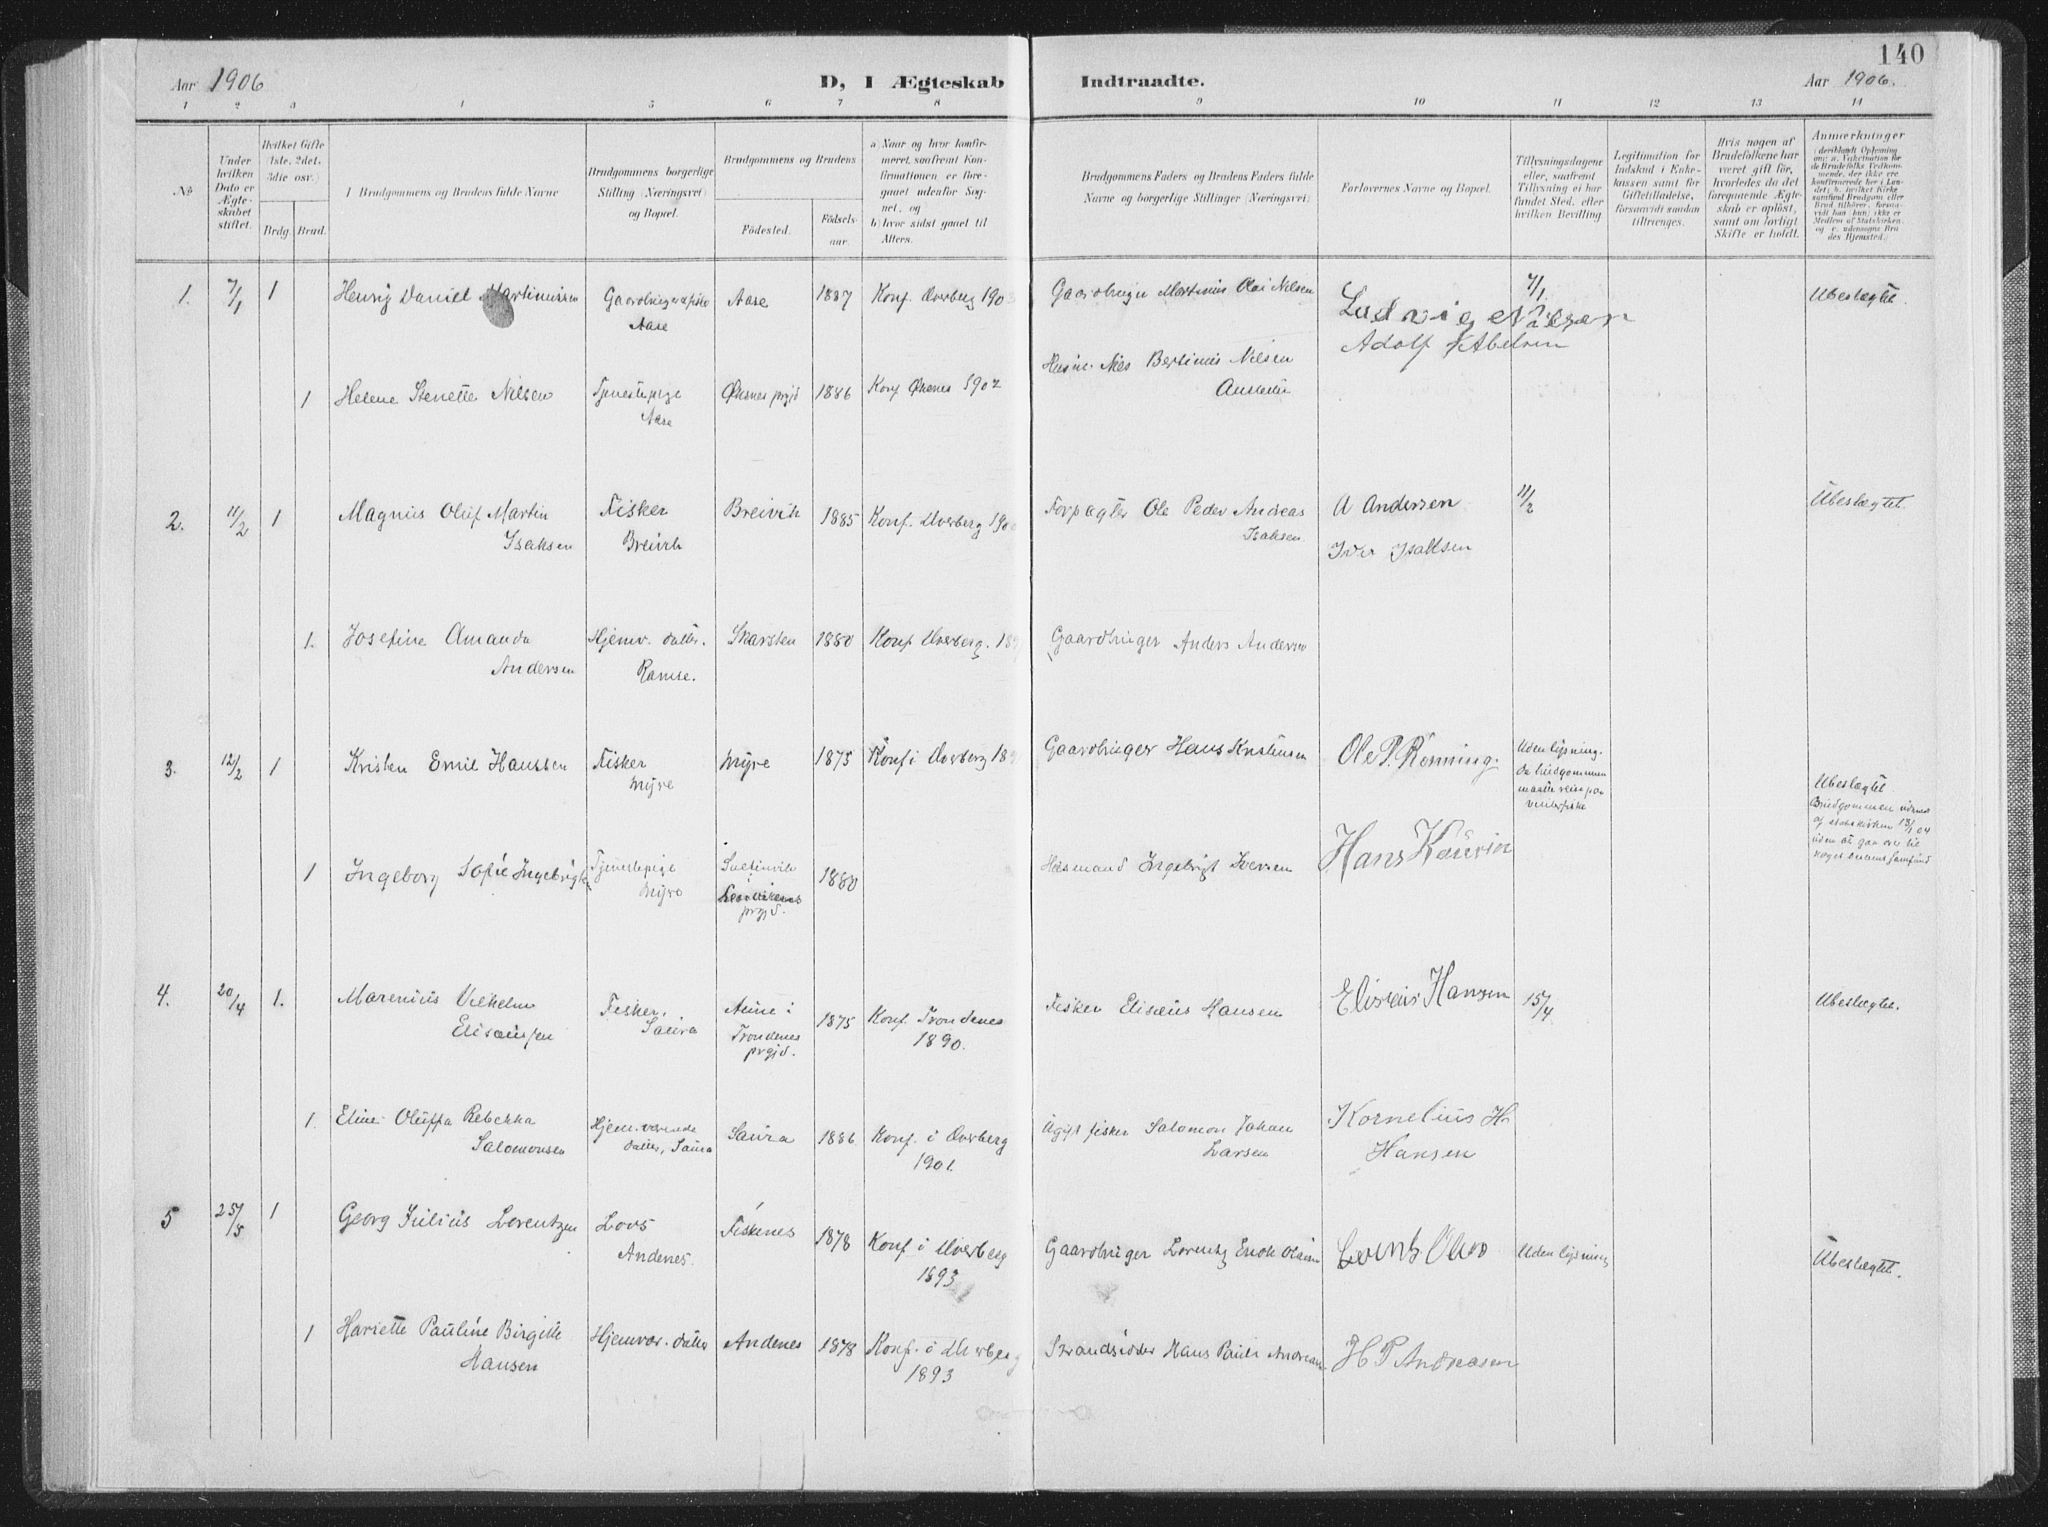 140
Aar 1906
D, I Ægteskab Indtraadte.
Aar 1906.
1 2 3 4 5 6 7 8 9 10 11 12 13 14
No
Under hvilken Dato er Ægteskabet stiftet.
Hvilket Gifte (1ste, 2det, 3die osv.)
Brdg. Brud.
Brudgommens og Brudens fulde Navne
Brudgommens borgerlige Stilling (Næringsvei) og Bopæl.
Brudgommens og Brudens
Födested.
Födselsaar.
a) Naar og hvor konfirmeret, saafremt Konfirmationen er foregaaet udenfor Sognet, og
b) hvor sidst gaaet til Alters.
Brudgommens Faders og Brudens Faders fulde Navne og borgerlige Stillinger (Næringsvei)
Forlovernes Navne og Bopæl.
Tillysningsdagene eller, saafremt Tillysning ei har fundet Sted, efter hvilken Bevilling.
Legitimation for Indskud i Enkekassen samt for Giftetilladelse, forsaavidt saadan tiltrænges.
Hvis nogen af Brudefolkene har været gift för, hvorledes da det foregaaende Ægteskab er oplöst, samt om lovligt Skifte er holdt.
Anmærkninger
1. 7/1 1
Henrig Daniel Martinussen
Aase
Aase
1887
Konf. Dverberg
Gaardbruger Martinus Olai Nilsen
Ludvig Nilsen
Adolf Abelsen
7/1
Ubeslægtet.
1
Helene Stenette Nilsen
Tjenestepige
Aase
Øksnes prgjd
1886
Konf Øksnes 1902
Nils Bertinus Nilsen
2. 11/2 1
Magnus Oluf Martin
Isaksen
Fisker
Breivik
Breivik
1885
Konf. Dverberg
Forpagter Ole Peder Andreas
Isaksen
A Andersen
Iver Isaksen
11/2
Ubeslægtet.
1.
Josefine Amanda
Andersen
Hjemv. datter.
Ramse.
Skarsten
1880
Konf Dverberg.
Gaardbruger Anders Andersen
3. 12/2 1
Kristen Emil Hanssen
Fisker
Myre
Myre
1875
Konf i Dverberg
Gaardbruger Hans Kristensen
Ole P. Rønning.
Uden lysning.
da brudgommen
maatte reise paa
vinterfiske
Ubeslægtet
Brudgommen udmeldt
af statskirken 13/1 04
uden at gaa over til
noget andet samfund
1
Ingeborg Sofie
Tjenestepige
Myre
prgjd.
1880
Husmand Ingebrigt Iversen
Hans Kaurin
4. 20/4 1.
Marenius Vilhelm
Elisæussen
Fisker,
Saura
Aune i
Trondenes
prgjd.
1875
Konf. Trondenes
1890.
Fisker Elisæus Hansen
Elisæus Hansen
15/4
Ubeslægtet.
1.
Eline Oluffa Rebekka
Salomonsen
Hjem.værende
datter, Saura
Saura
1886
Konf. i Dverberg
1901.
Ugift fisker Salomon Johan
Larsen
Kornelius H.
Hansen
5 25/5 1
Georg Julius Lorentzen
Lods
Andenes.
Fiskenes
1878
Konf i Dverberg
1893
Gaardbruger Lorentz Enok
Uden lysning
Ubeslægtet.
1
Hariette Pauline Birgitte
Hansen
Hjemvær. datter
Andenes
1878
Konf. i Dverberg
1893
Strandsidder Hans Paul
H P Andreasen